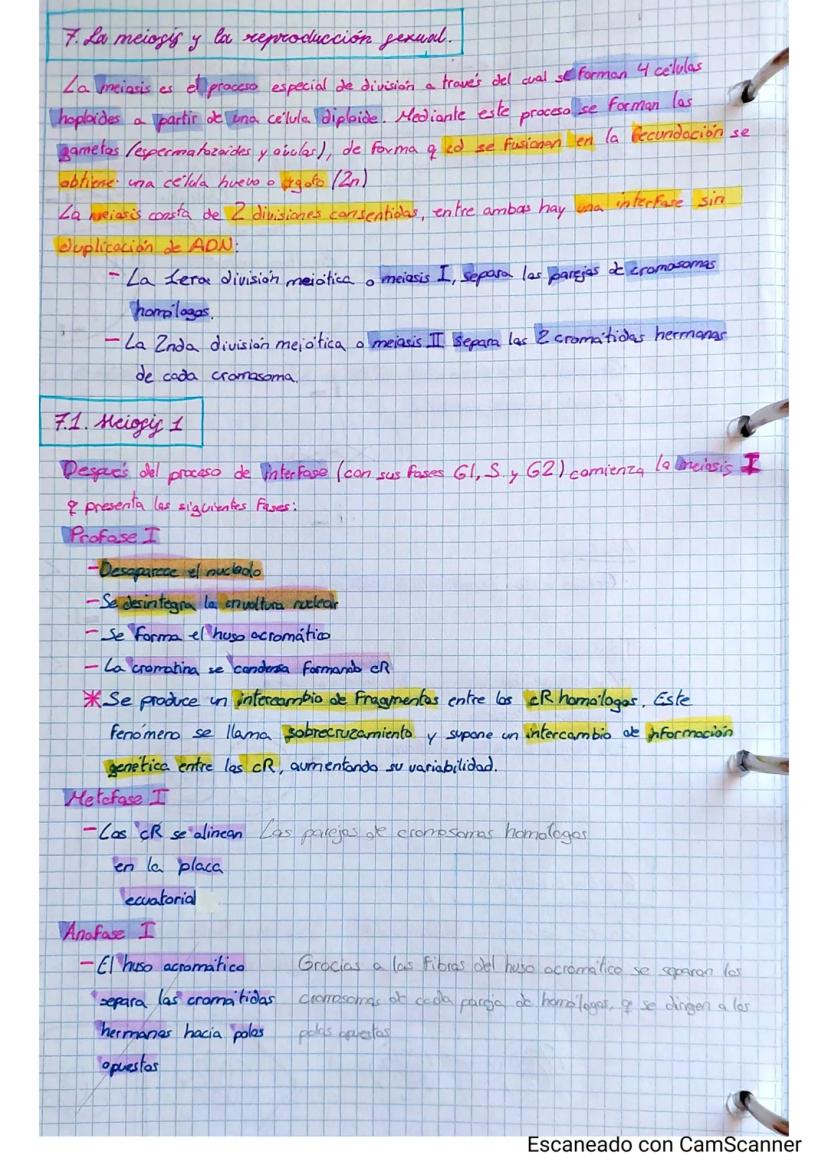 7. La meiosis y la reproducción sexual.
La meiosis es el proceso especial de división a través del cual se forman 4 células
haploides a partir de una célula diploide. Mediante este proceso se forman los
gametos (espermatozoides y óvulos), de forma q cd se fusionan en la fecundación se
obtiene una célula huevo o zigoto (2n)
La meiosis consta de 2 divisiones consentidas, entre ambas hay una interfase sin
duplicación de ADN:
- La 1era división meiótica o meiosis I, separa las parejas de cromosomas
homólogos.
- La 2nda división meiótica o meiosis II separa las 2 cromátidas hermanas
de cada cromosoma.
7.1. Meiosis 1
Después del proceso de interfase (con sus fases G1, S y G2) comienza la meiosis I
q presenta las siguientes fases:
Profase I
- Desaparece el nucleolo
- Se desintegra la envoltura nuclear
- Se forma el huso acromático
- La cromatina se condensa formando cR
* Se produce un intercambio de fragmentos entre los cR homólogos. Este
fenómeno se llama sobrecruzamiento y supone un intercambio de información
genética entre los cR, aumentando su variabilidad.
Metafase I
- Los cR se alinean Las parejas de cromosomas homologos
en la placa
ecuatorial
Anafase I
- El huso acromático Gracias a las fibras del huso acromático se separan los
separa las cromátidas cromosomas de cada pareja de homólogos, q se dirigen a los
hermanas hacia polos polos opuestos
opuestos
Escaneado con CamScanner